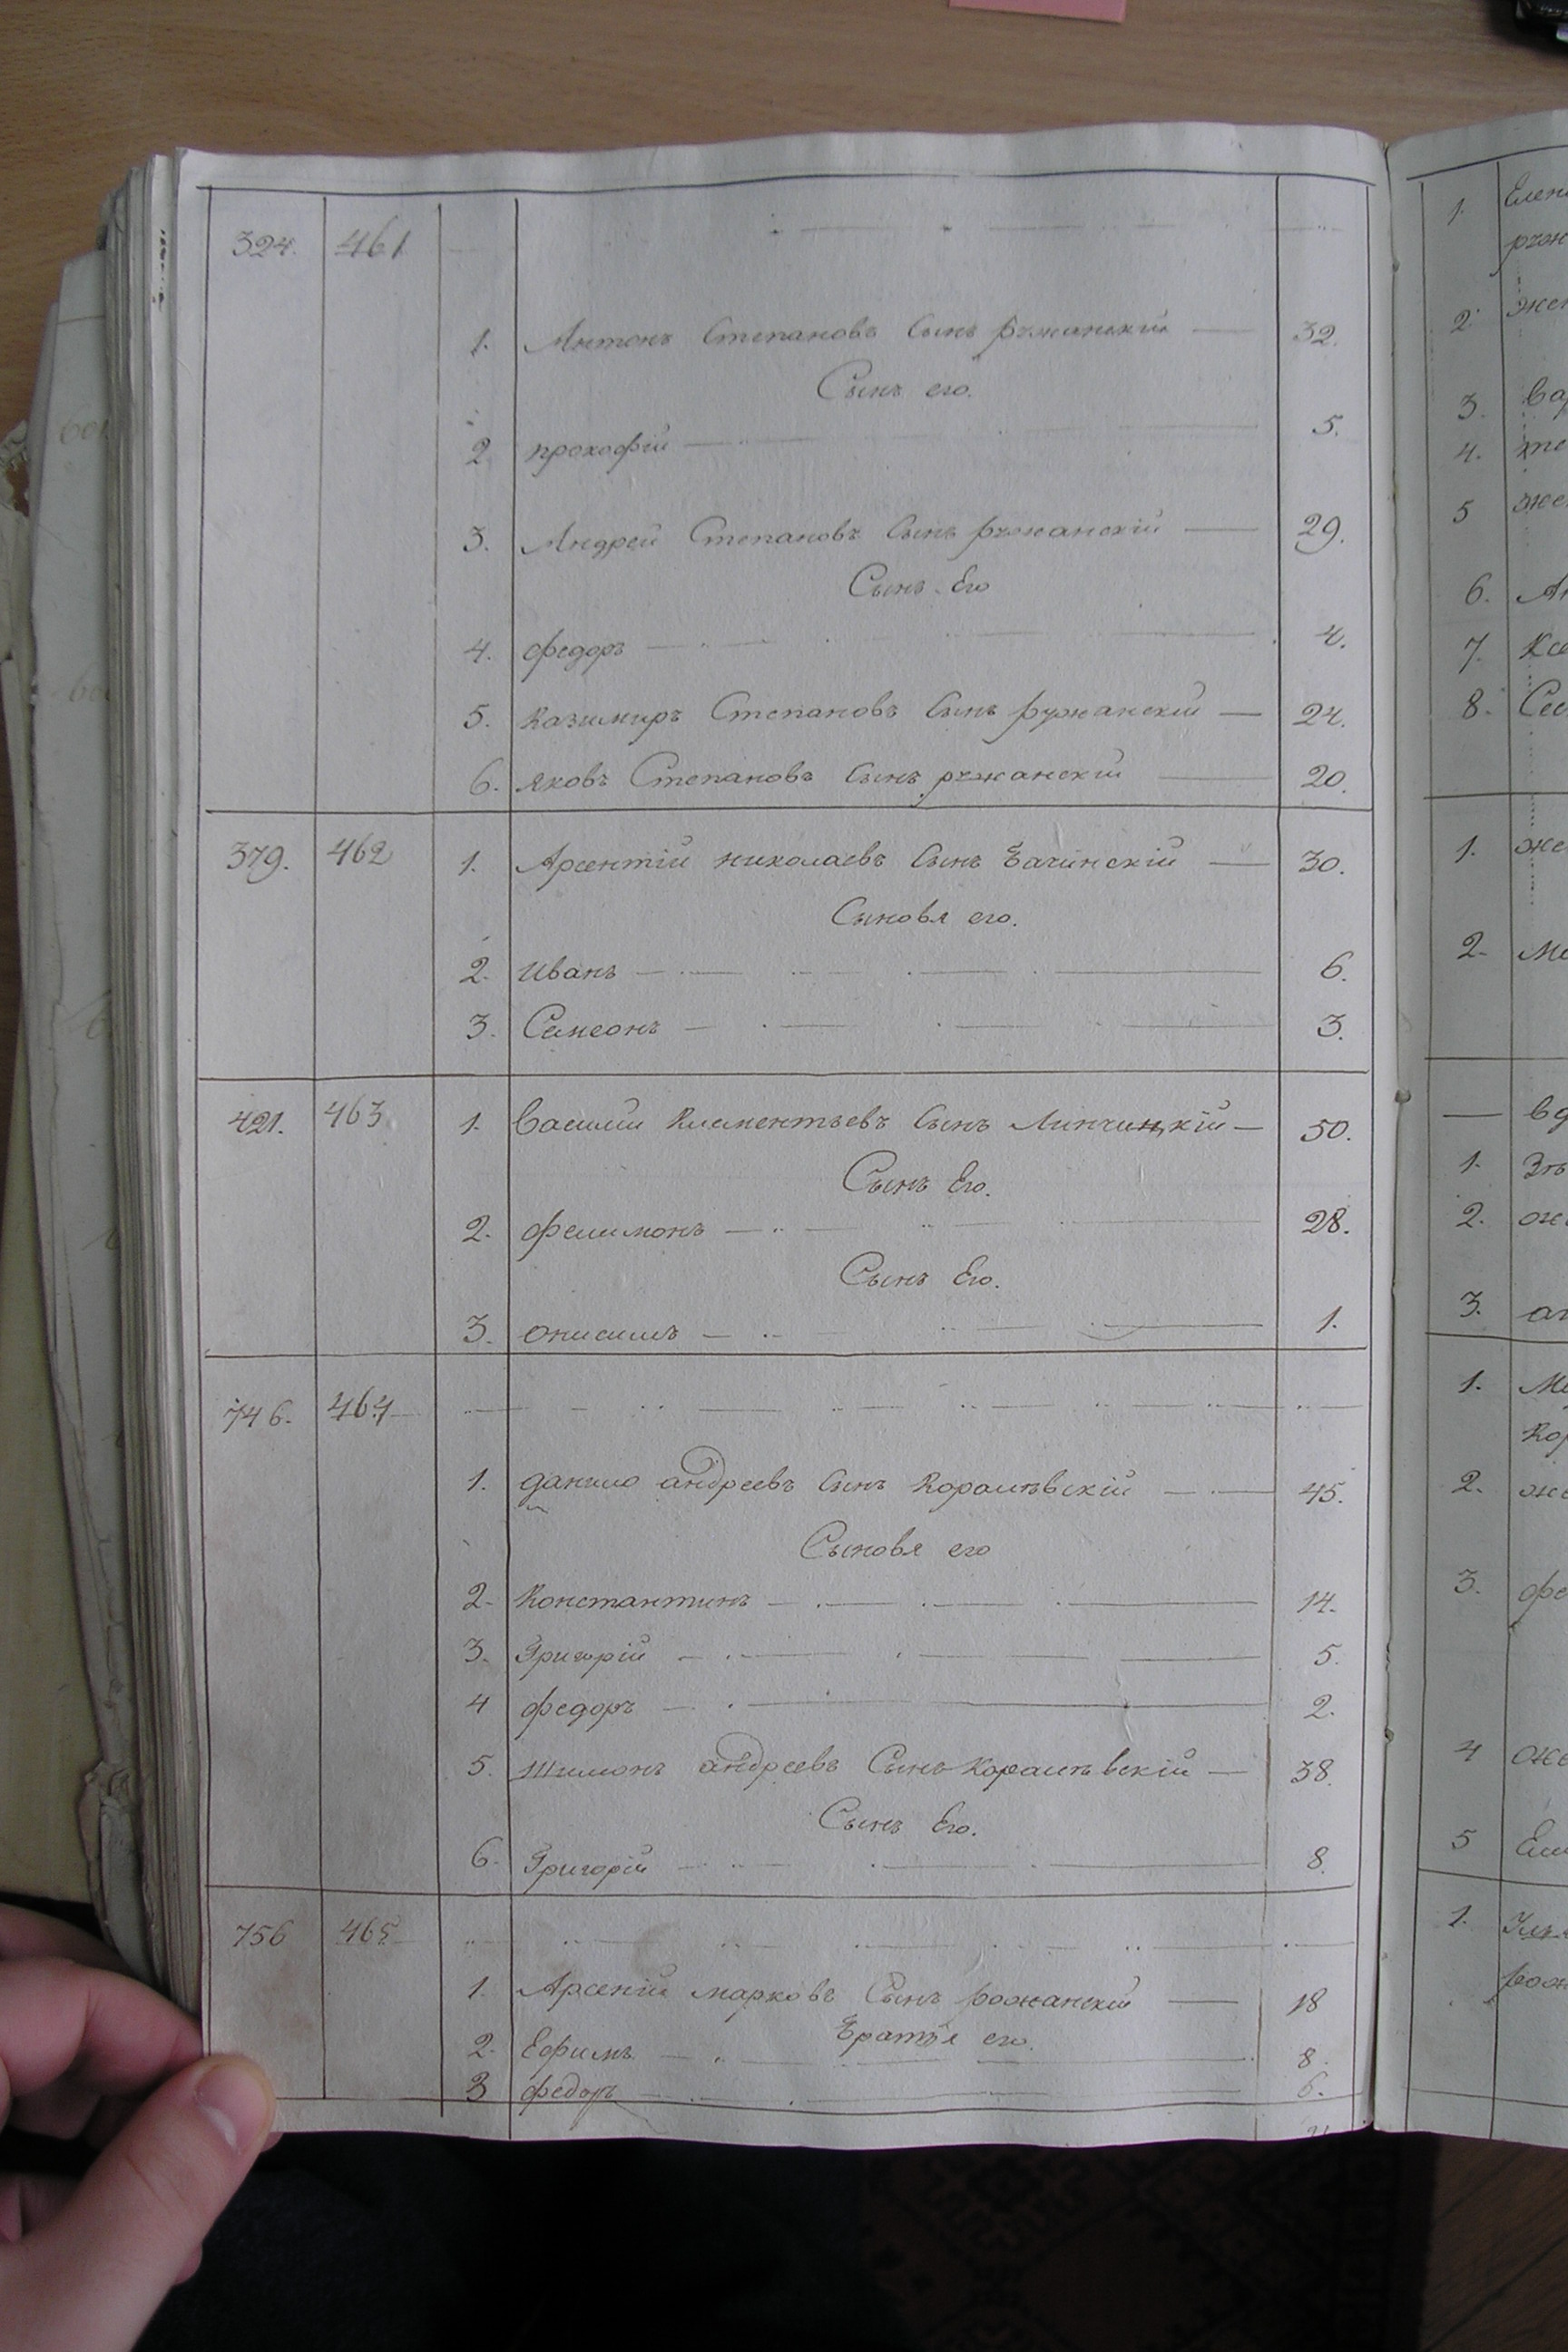 324. 461
1. Антонъ Степановъ Сынъ ржанскій — 32.
Сынъ его.
2 прокофій — 5.
3. Андрей Степановъ Сынъ ржанскій — 29.
Сынъ Его
4. федоръ — 4.
5. Казимиръ Степановъ Сынъ ружанскій — 24.
6. яковъ Степановъ Сынъ ржанскій — 20.
379. 462 1. Арсентій николаевъ Сынъ Бачинскій — 30.
Сыновя его.
2. Иванъ — 6.
3. Семеонъ — 3.
421. 463 1. Василий Клементьевъ Сынъ Линчицкій — 50.
Сынъ Его.
2. филимонъ — 28.
Сынъ Его.
3. онисимъ — 1.
746. 464
1. данило андреевъ Сынъ Коралѣвскій — 45.
Сыновя его
2. Константинъ — 14.
3. Григорій — 5.
4 федоръ — 2.
5. Шимонъ андреевъ Сынъ Коралѣвскій — 38.
Сынъ Его.
6. Григорій — 8.
756 465
1. Арсеній марковъ Сынъ рожанскій — 18
Братья его.
2. Ефимъ — 8.
3 федоръ — 6.
1.
2.
3.
4.
5
6.
7.
8.
1.
2.
1.
2.
3.
1.
2.
3.
4
5
1.